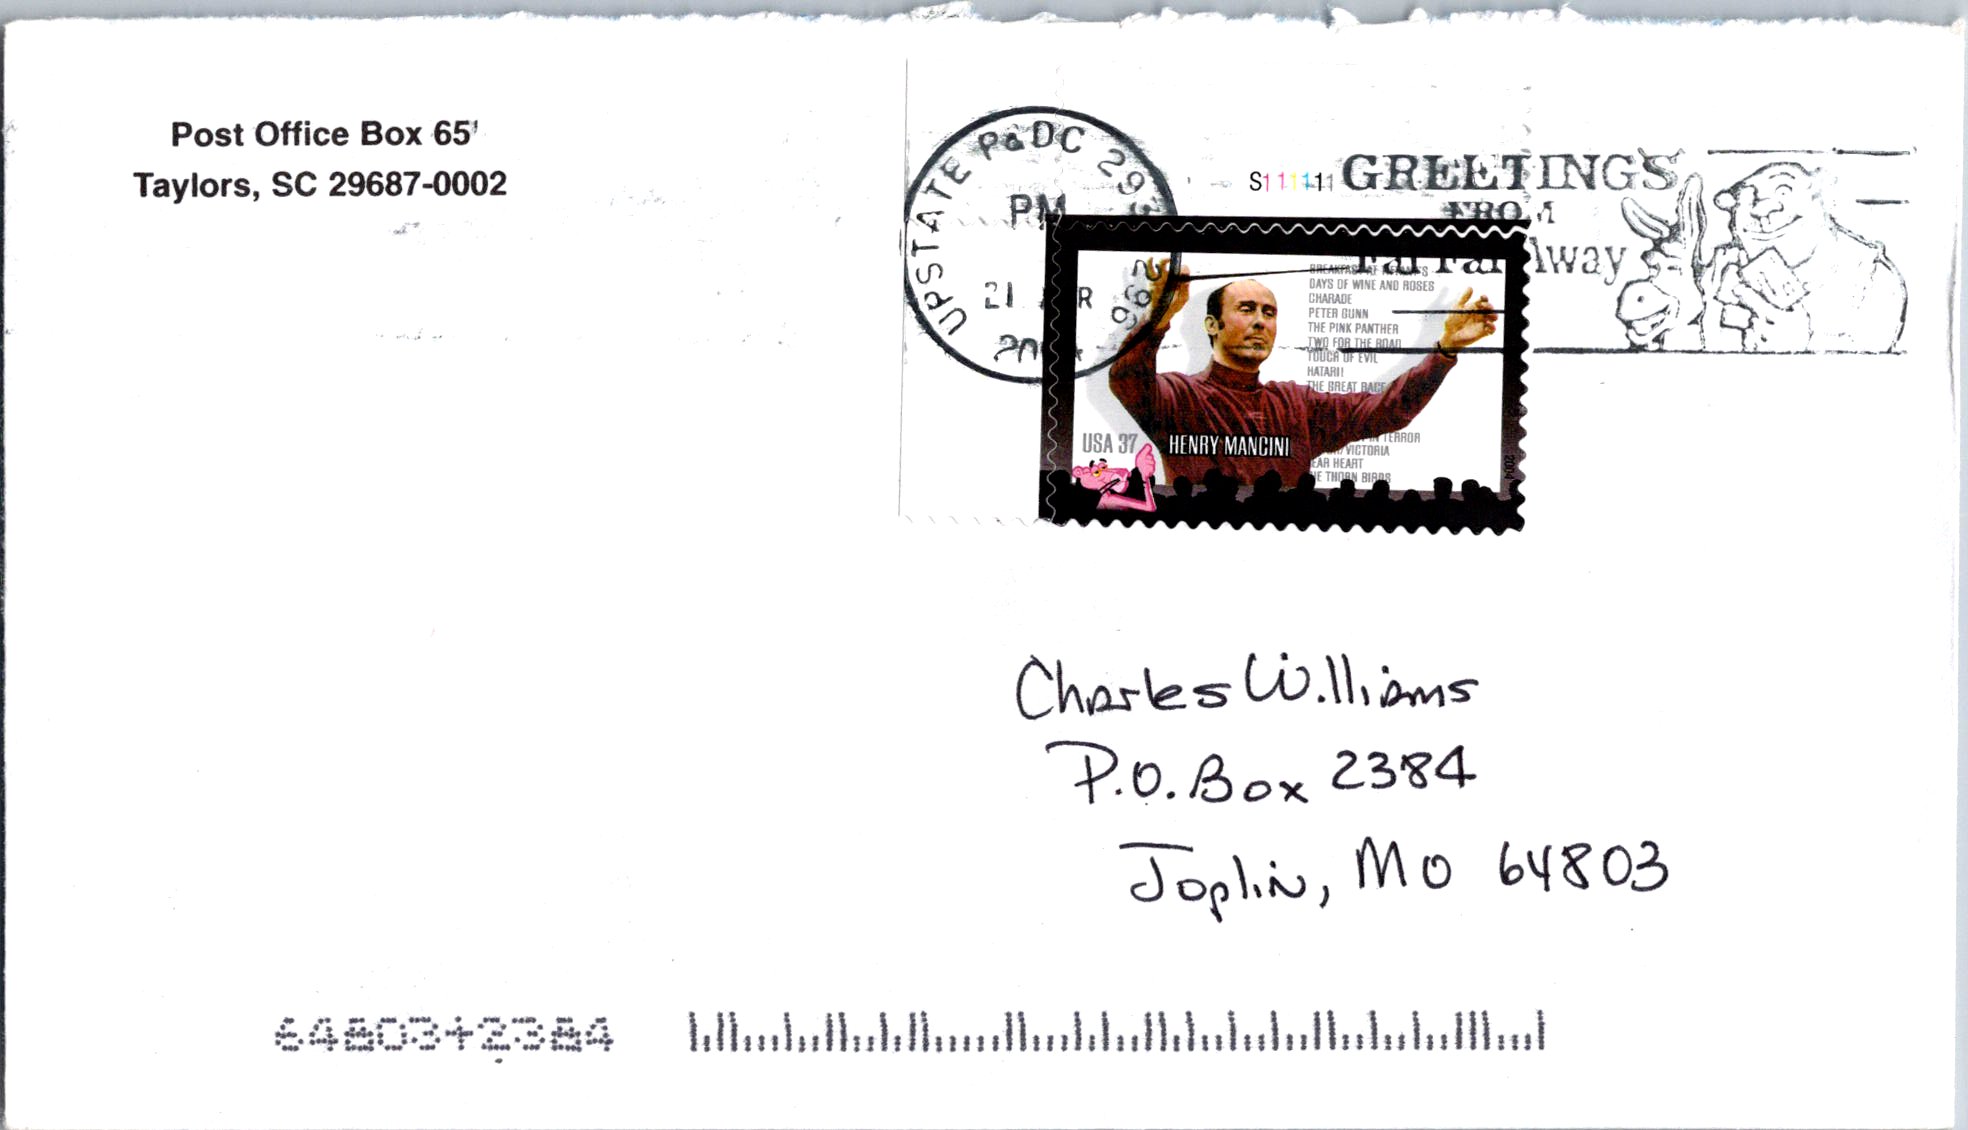 Post Office Box 65
Taylors, SC 29687-0002
UPSTATE P&DC 296
PM
21
296
S111111
GREETINGS
FROM
Far Far Away
BREAKFAST AT TIFFANY'S
DAYS OF WINE AND ROSES
CHARADE
PETER GUNN
THE PINK PANTHER
TWO FOR THE ROAD
TOUCH OF EVIL
HATARI!
THE GREAT RACE
IN TERROR
VICTORIA
EAR HEART
E THORN BIRDS
USA 37
HENRY MANCINI
2004
Charles Williams
P.O. Box 2384
Joplin, MO 64803
64803+2384